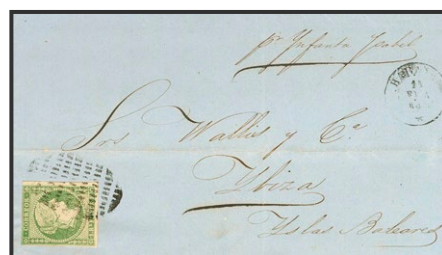 pr Infanta Isabel
Sres Wallis y Ca
Ybiza
Yslas Baleares
CORREOS